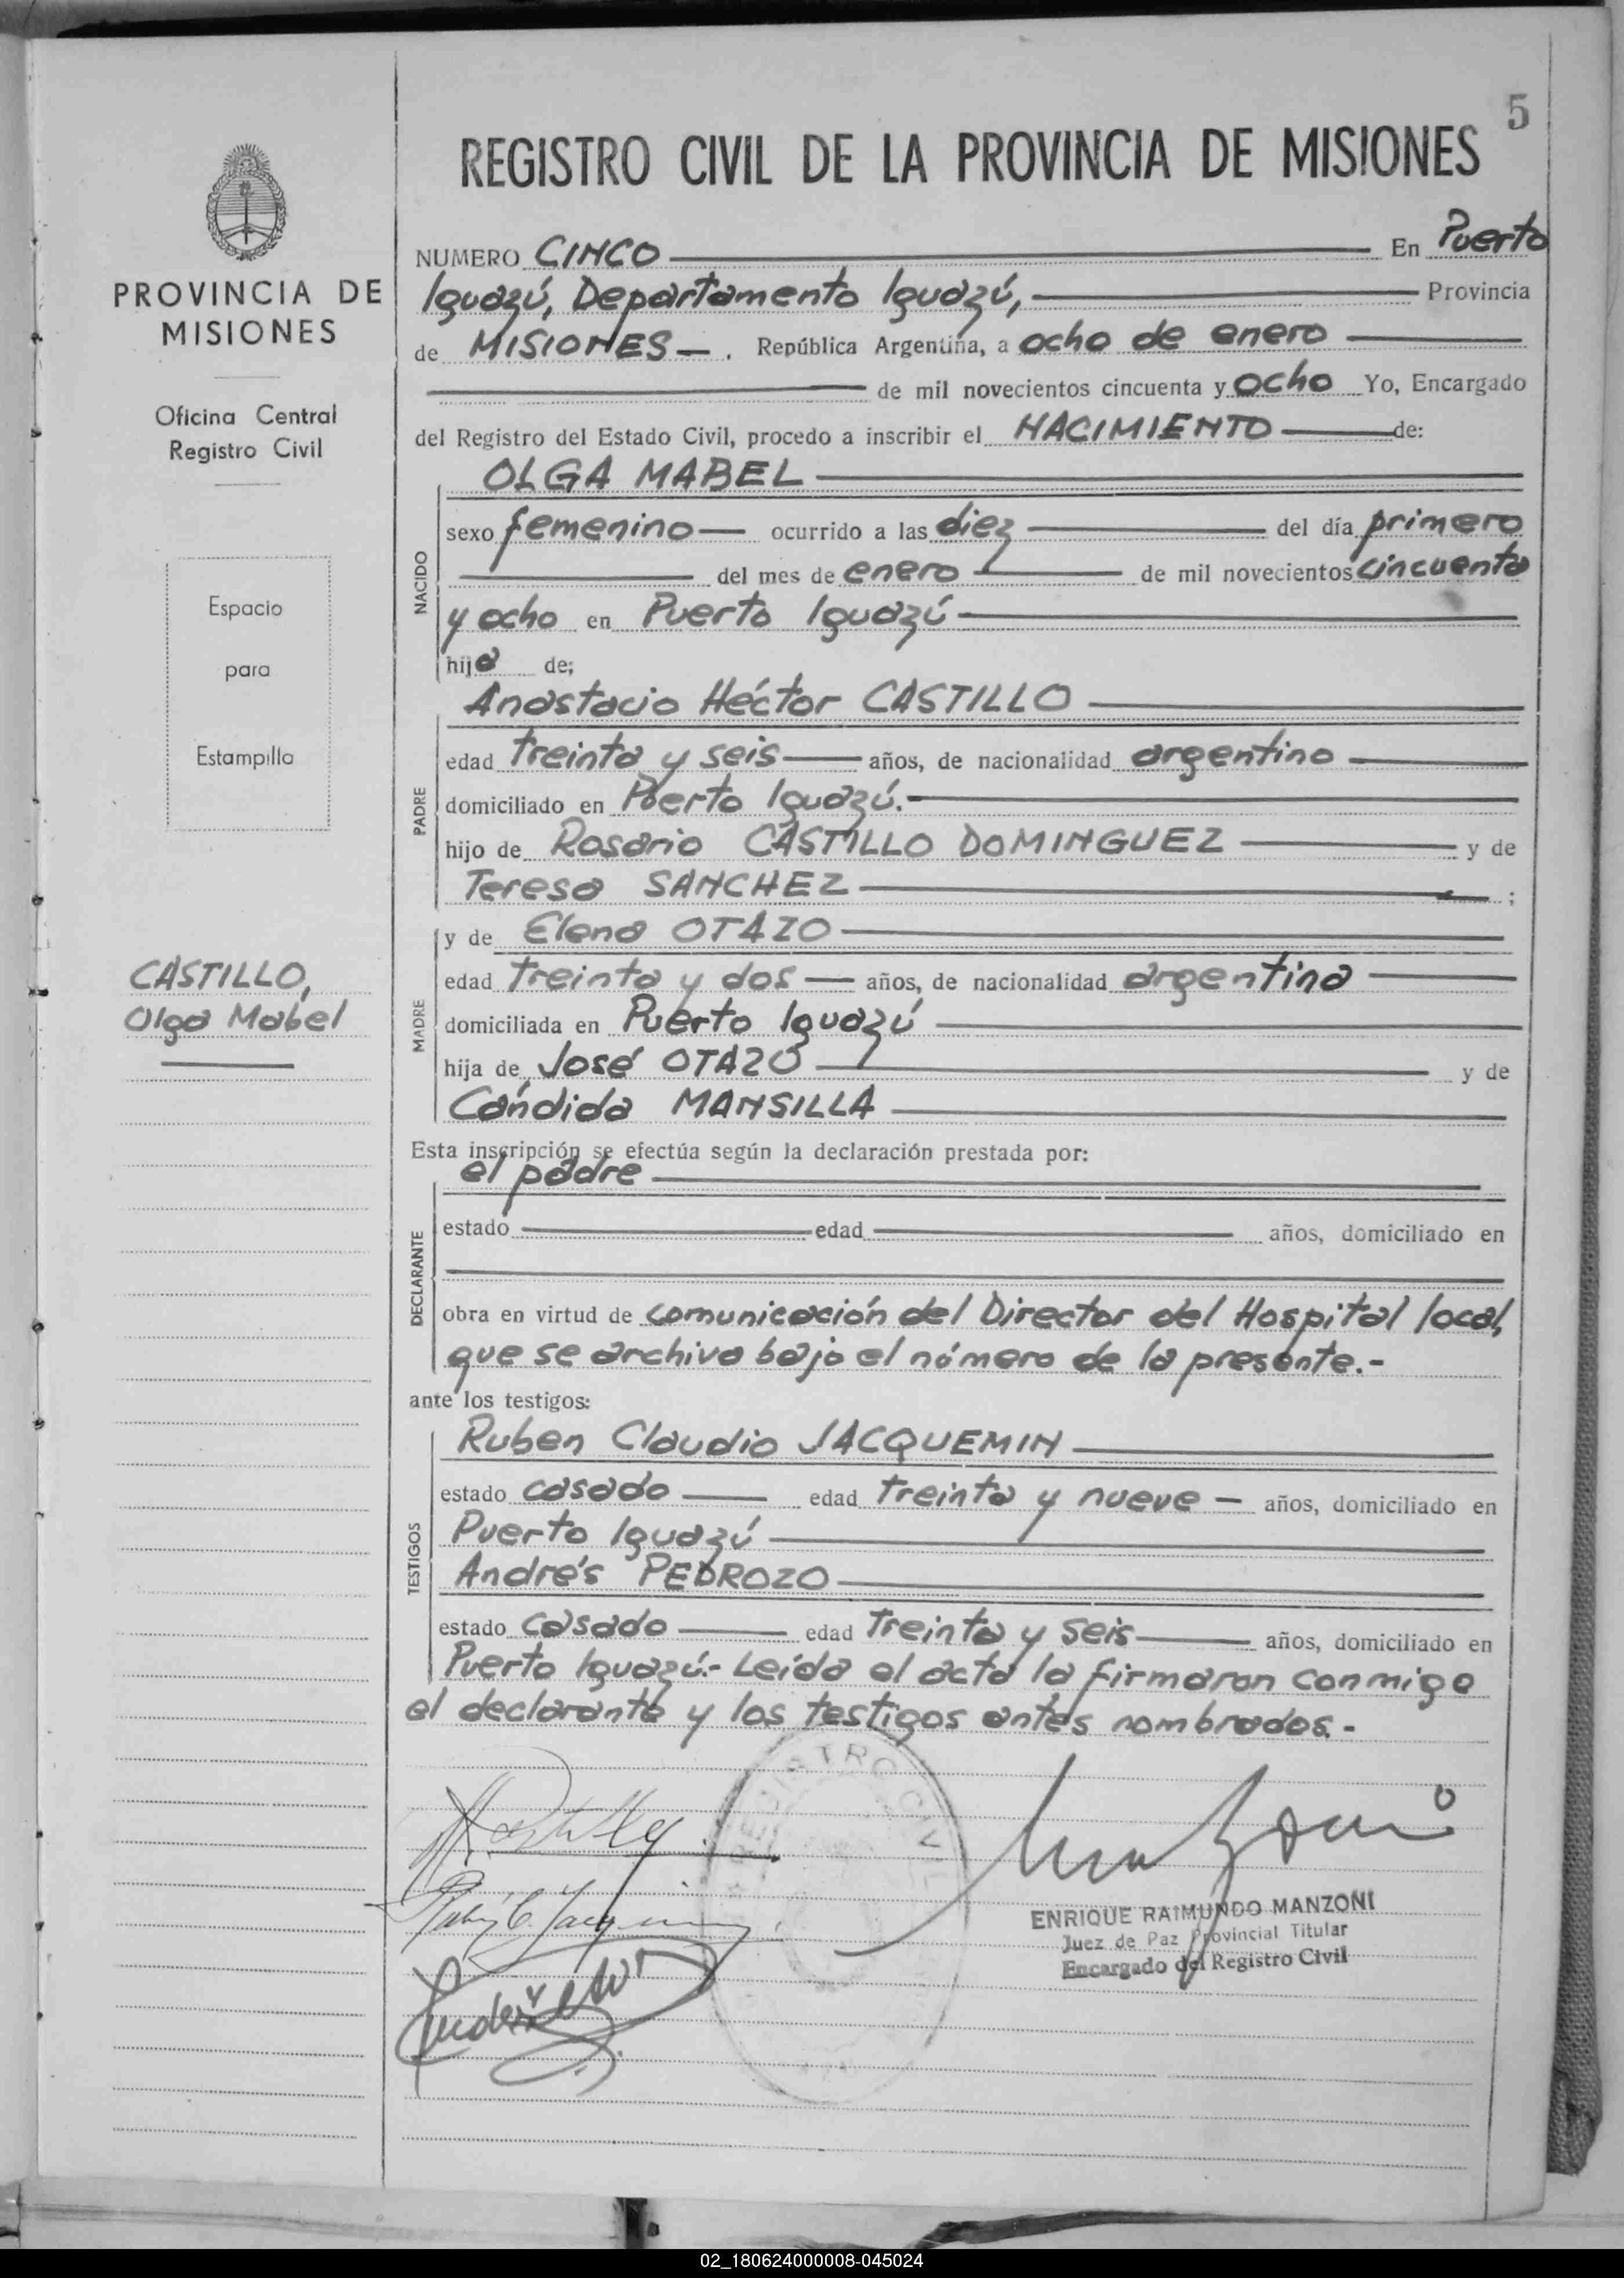 5
REGISTRO CIVIL DE LA PROVINCIA DE MISIONES
PROVINCIA DE
MISIONES
Oficina Central
Registro Civil
Espacio
para
Estampilla
CASTILLO,
Olga Mabel
NUMERO CINCO En Puerto
Iguazú, Departamento Iguazú, Provincia
de MISIONES - . República Argentina, a ocho de enero
de mil novecientos cincuenta y ocho Yo, Encargado
del Registro del Estado Civil, procedo a inscribir el NACIMIENTO de:
NACIDO
OLGA MABEL
sexo femenino ocurrido a las diez del día primero
del mes de enero de mil novecientos cincuenta
y ocho en Puerto Iguazú
hija de;
Anastacio Héctor CASTILLO
PADRE
edad treinta y seis años, de nacionalidad argentino
domiciliado en Puerto Iguazú.
hijo de Rosario CASTILLO DOMINGUEZ y de
Teresa SANCHEZ ;
MADRE
y de Elena OTAZO
edad treinta y dos años, de nacionalidad argentina
domiciliada en Puerto Iguazú
hija de José OTAZO y de
Cándida MANSILLA
Esta inscripción se efectúa según la declaración prestada por:
DECLARANTE
el padre
estado edad años, domiciliado en
obra en virtud de comunicación del Director del Hospital local,
que se archiva bajo el número de la presente.-
ante los testigos:
TESTIGOS
Ruben Claudio JACQUEMIN
estado casado edad treinta y nueve - años, domiciliado en
Puerto Iguazú
Andrés PEDROZO
estado casado edad treinta y seis años, domiciliado en
Puerto Iguazú.- Leída el acta la firmaron conmigo
el declarante y los testigos antes nombrados.-
REGISTRO CIVIL
Manzoni
ENRIQUE RAIMUNDO MANZONI
Juez de Paz Provincial Titular
Encargado del Registro Civil
02_180624000008-045024